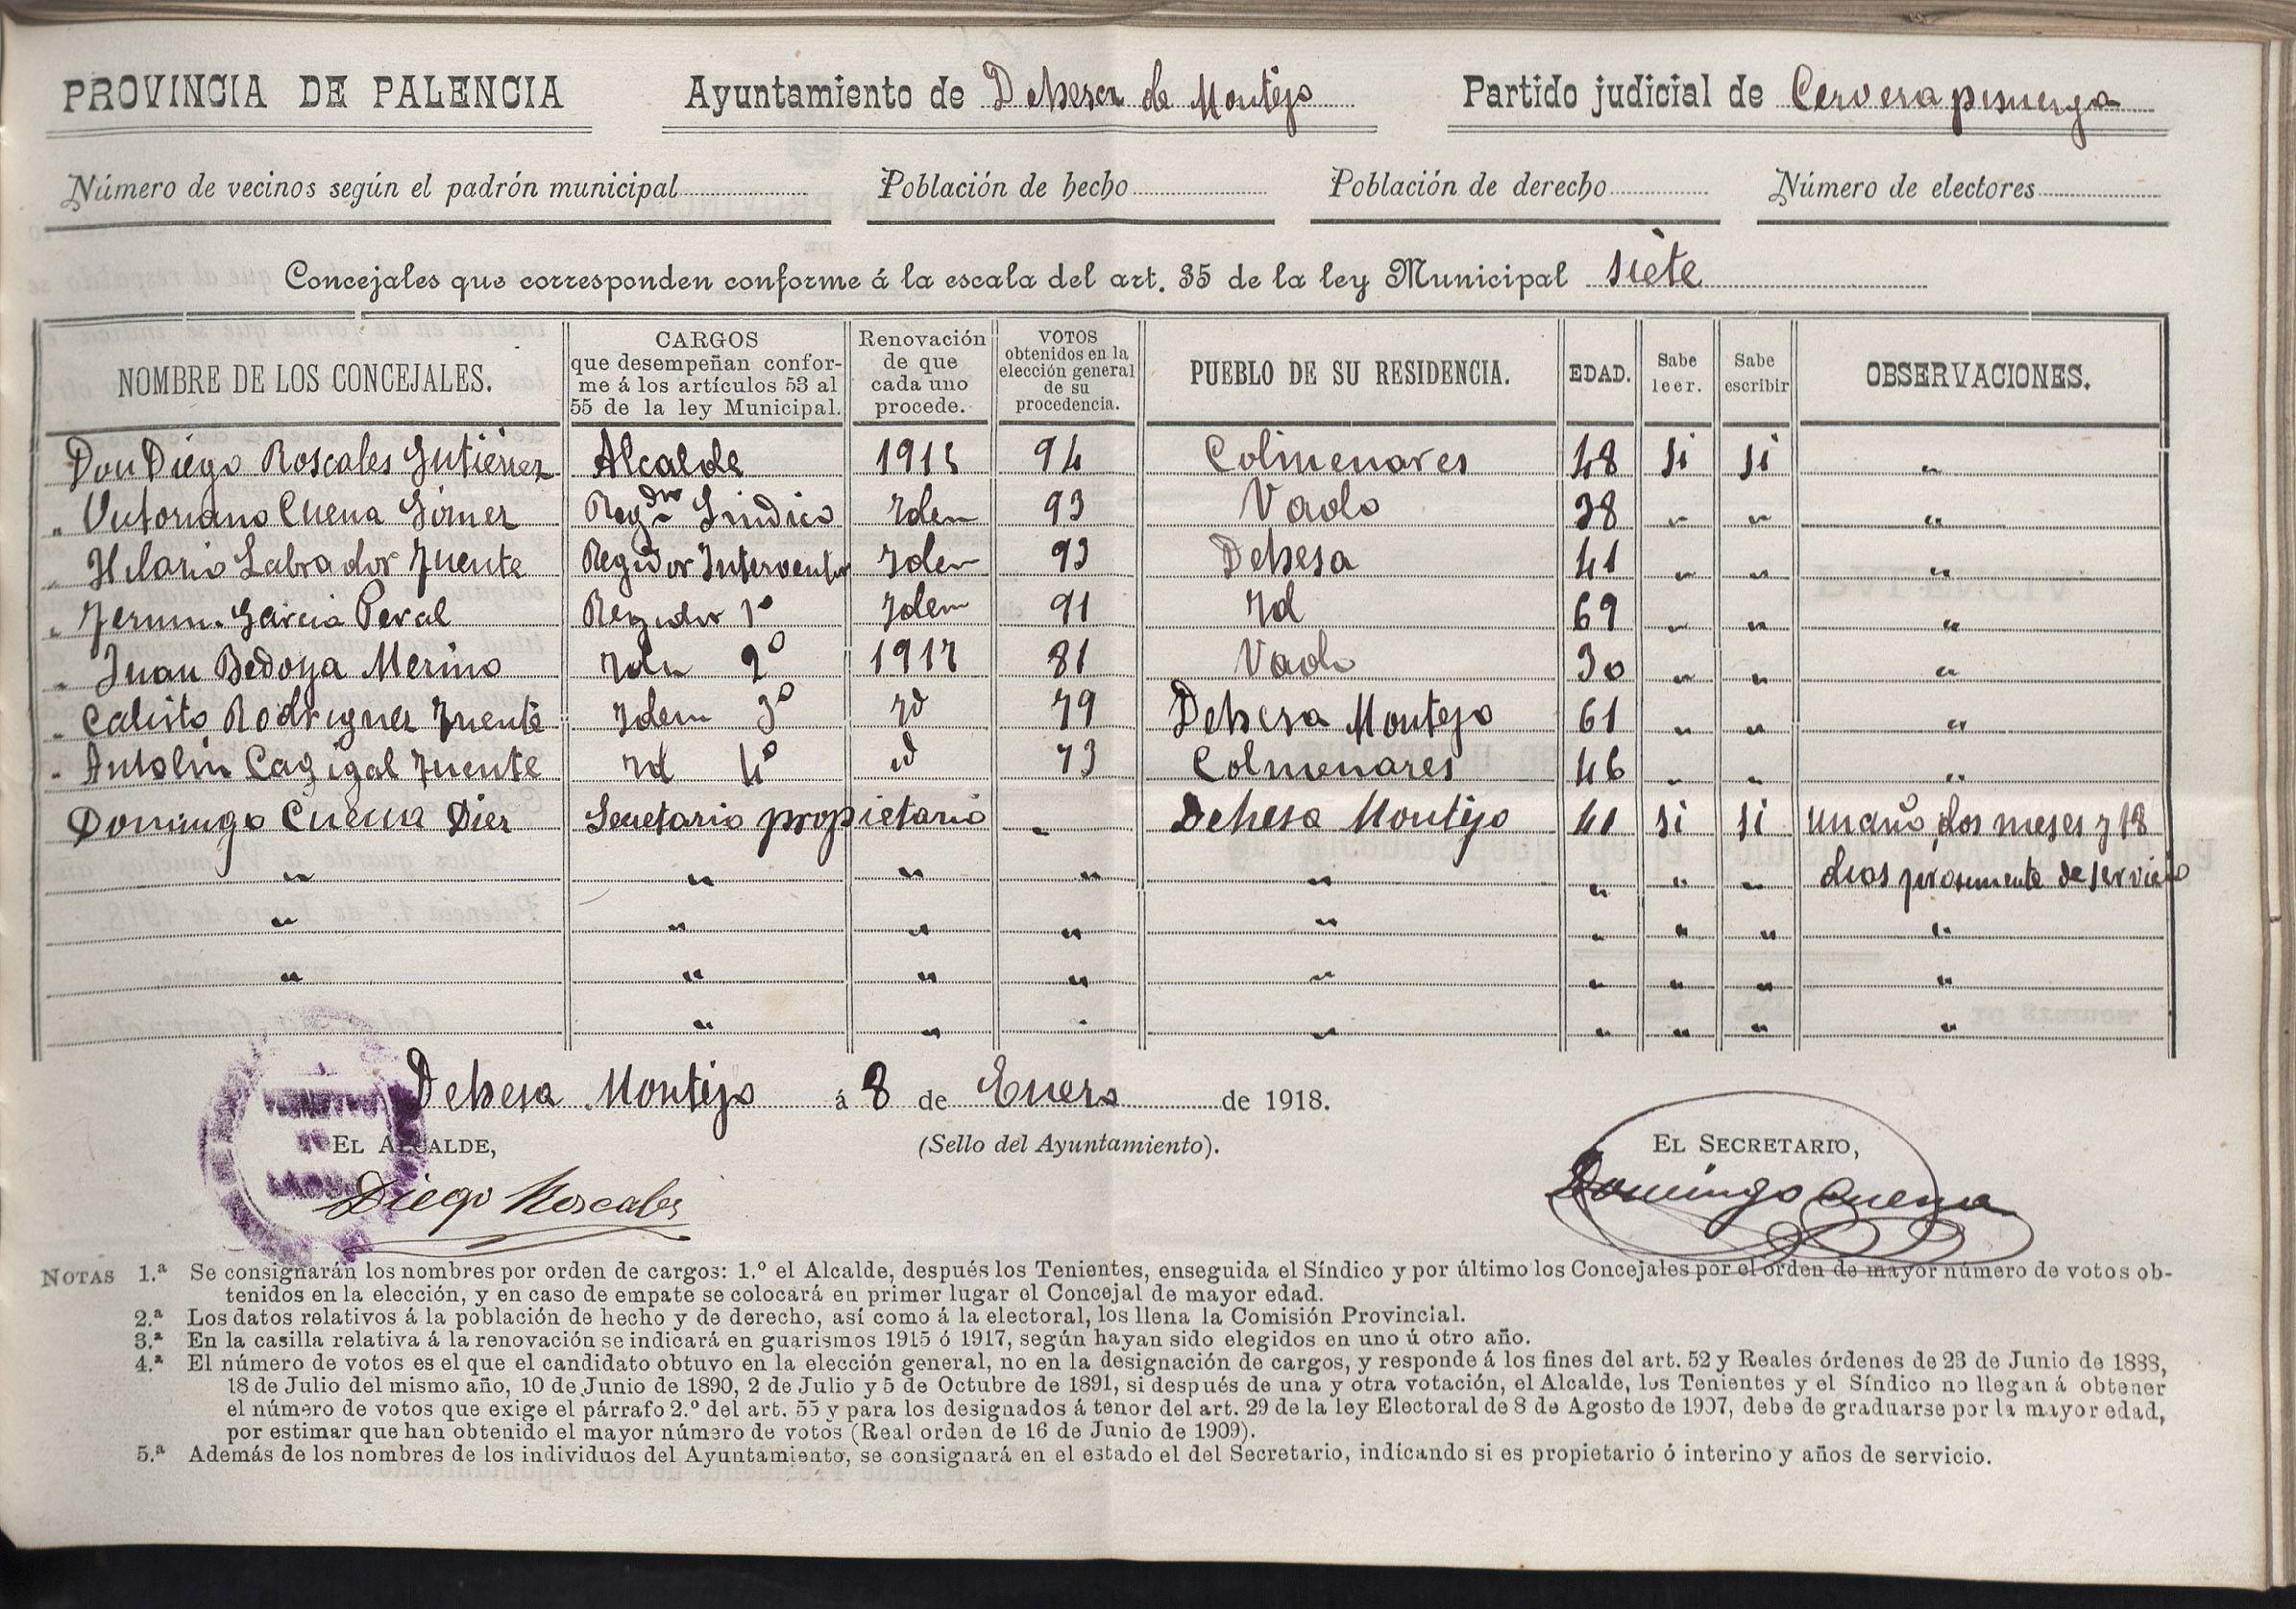 PROVINCIA DE PALENCIA Ayuntamiento de Dehesa de Montejo Partido judicial de Cervera pisuerga
Número de vecinos según el padrón municipal Población de hecho Población de derecho Número de electores
Concejales que corresponden conforme á la escala del art. 35 de la ley Municipal siete
NOMBRE DE LOS CONCEJALES.
CARGOS
que desempeñan confor-
me á los artículos 53 al
55 de la ley Municipal.
Renovación
de que
cada uno
procede.
VOTOS
obtenidos en la
elección general
de su
procedencia.
PUEBLO DE SU RESIDENCIA.
EDAD.
Sabe
leer.
Sabe
escribir
OBSERVACIONES.
Don Diego Roscales Gutierrez Alcalde 1915 94 Colmenares 48 si si "
" Victoriano Cuena Gómez Regdor Sindico Idem 93 Vado 38 " " "
" Hilario Labrador Fuente Regidor Interventor Idem 93 Dehesa 41 " " "
" García Peral Regidor 1º Idem 91 Id 69 " " "
" Juan Bedoya Merino Iden 2º 1917 81 Vado 30 " " "
" Calisto Rodriguez Fuente Idem 3º Id 79 Dehesa Montejo 61 " " "
" Antolin Cazigal Fuente Id 4º id 73 Colmenares 46 " " "
Domingo Cuena Diez Secretario propietario " Dehesa Montejo 41 si si un año dos meses y 18
" " " " " " " " dias de servicio
" " " " " " " " "
" " " " " " " " "
" " " " " " " "
Dehesa Montejo á 8 de Enero de 1918.
EL ALCALDE, (Sello del Ayuntamiento). EL SECRETARIO,
Diego Roscales Domingo Cuena
NOTAS 1.ª Se consignarán los nombres por orden de cargos: 1.º el Alcalde, después los Tenientes, enseguida el Síndico y por último los Concejales por el orden de mayor número de votos ob-
tenidos en la elección, y en caso de empate se colocará en primer lugar el Concejal de mayor edad.
2.ª Los datos relativos á la población de hecho y de derecho, así como á la electoral, los llena la Comisión Provincial.
3.ª En la casilla relativa á la renovación se indicará en guarismos 1915 ó 1917, según hayan sido elegidos en uno ú otro año.
4.ª El número de votos es el que el candidato obtuvo en la elección general, no en la designación de cargos, y responde á los fines del art. 52 y Reales órdenes de 23 de Junio de 1888,
18 de Julio del mismo año, 10 de Junio de 1890, 2 de Julio y 5 de Octubre de 1891, si después de una y otra votación, el Alcalde, los Tenientes y el Síndico no llegan á obtener
el número de votos que exige el párrafo 2.º del art. 55 y para los designados á tenor del art. 29 de la ley Electoral de 8 de Agosto de 1907, debe de graduarse por la mayor edad,
por estimar que han obtenido el mayor número de votos (Real orden de 16 de Junio de 1909).
5.ª Además de los nombres de los individuos del Ayuntamiento, se consignará en el estado el del Secretario, indicando si es propietario ó interino y años de servicio.